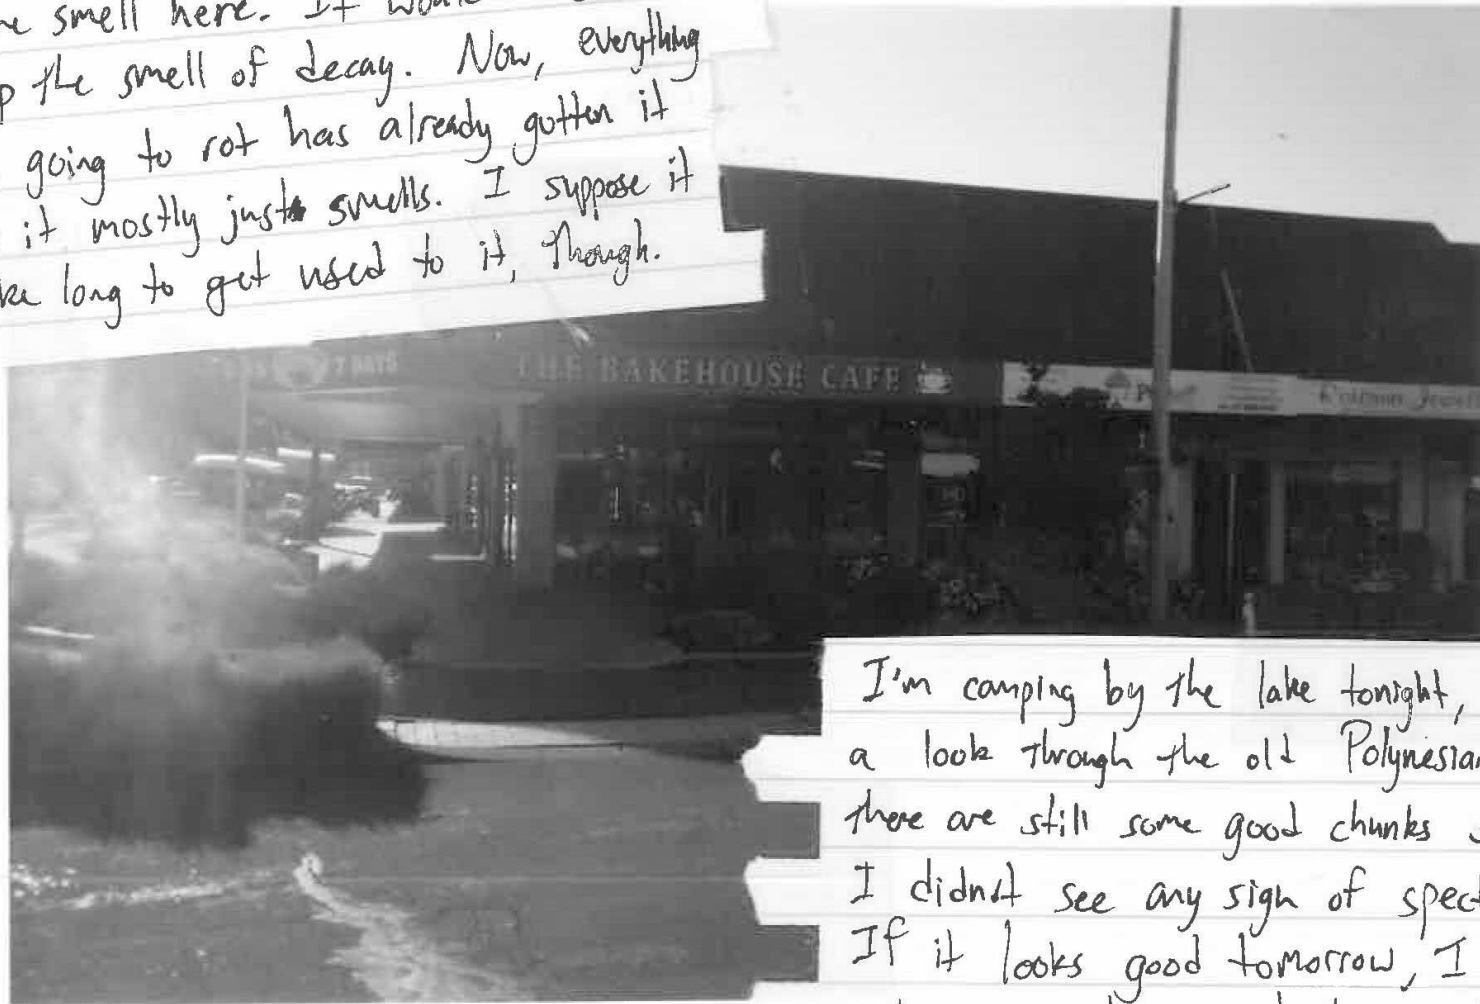 smell here. It
the smell of decay. Now, everything
going to rot has already gotten it
it mostly just smells. I suppose it
long to get used to it, though.
7 DAYS
THE BAKEHOUSE CAFE
I'm camping by the lake tonight,
a look through the old Polynesian
there are still some good chunks
I didn't see any sign of
If it looks good tomorrow, I